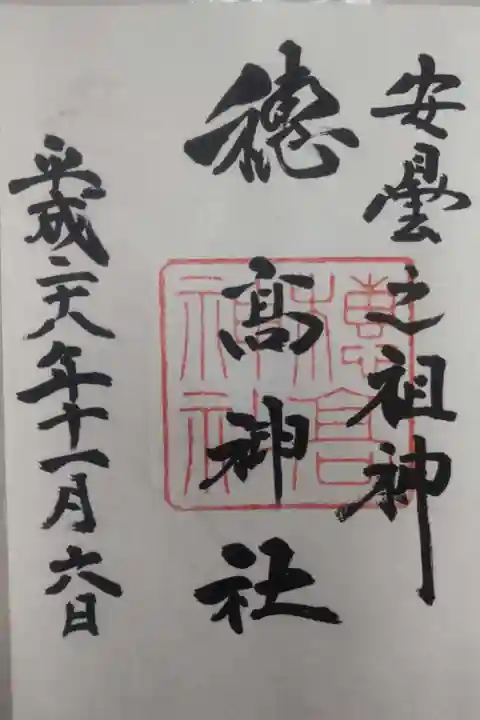 安曇之祖神
穂高神社
穂高神社
平成二十八年十一月六日